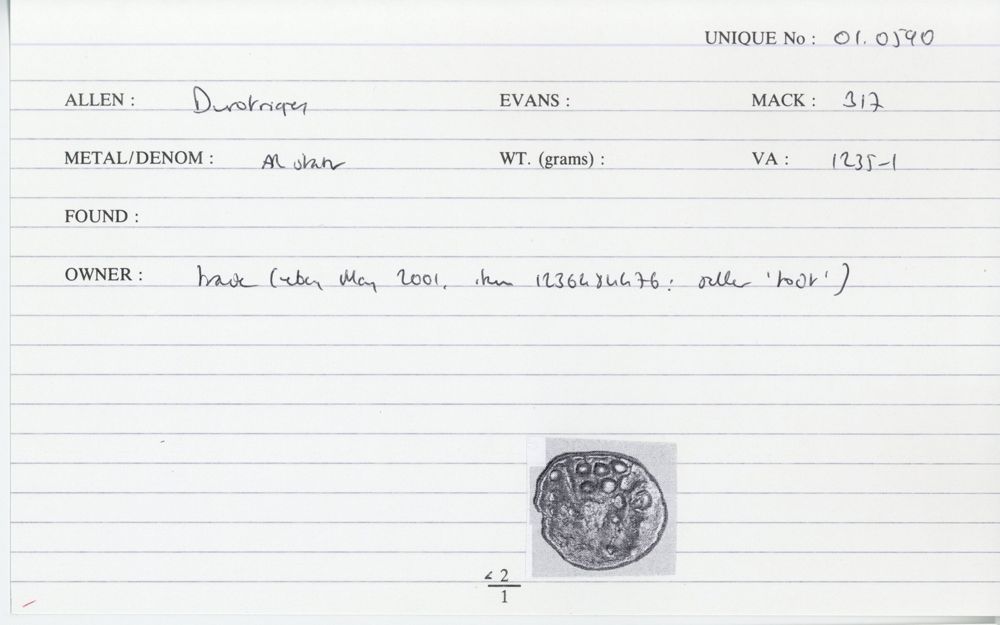 UNIQUE No : 01.0590
ALLEN : Durotriges EVANS : MACK : 317
METAL/DENOM : AR stater WT. (grams) : VA : 1235-1
FOUND :
OWNER : trade (eBay May 2001, item 1236484476: seller
< 2
1